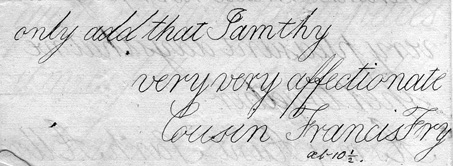 only add that I am thy
very very affectionate
Cousin Francis Fry
at 10½.